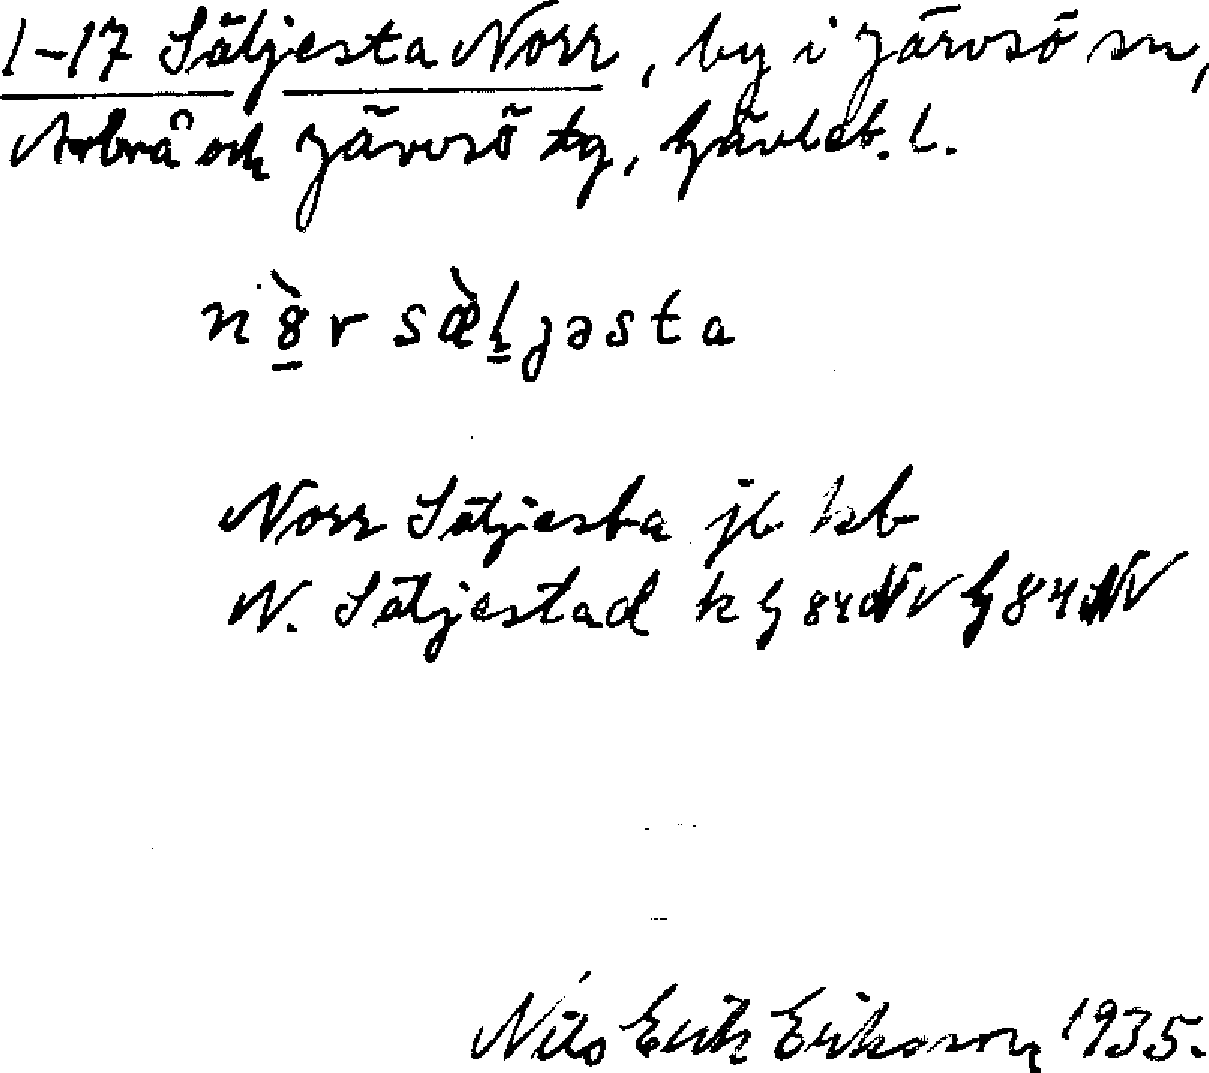 1-17 Säljesta Norr, by i Järvsö sn,
Arbrå och Järvsö tg, Gävleb. l.
n 8̲̀ r s æ̀ l̲ j ə s t a
Norr Säljesta jb kb
N. Säljestad k G 84 NV G 84 NV
Nils Erik Eriksson 1935.